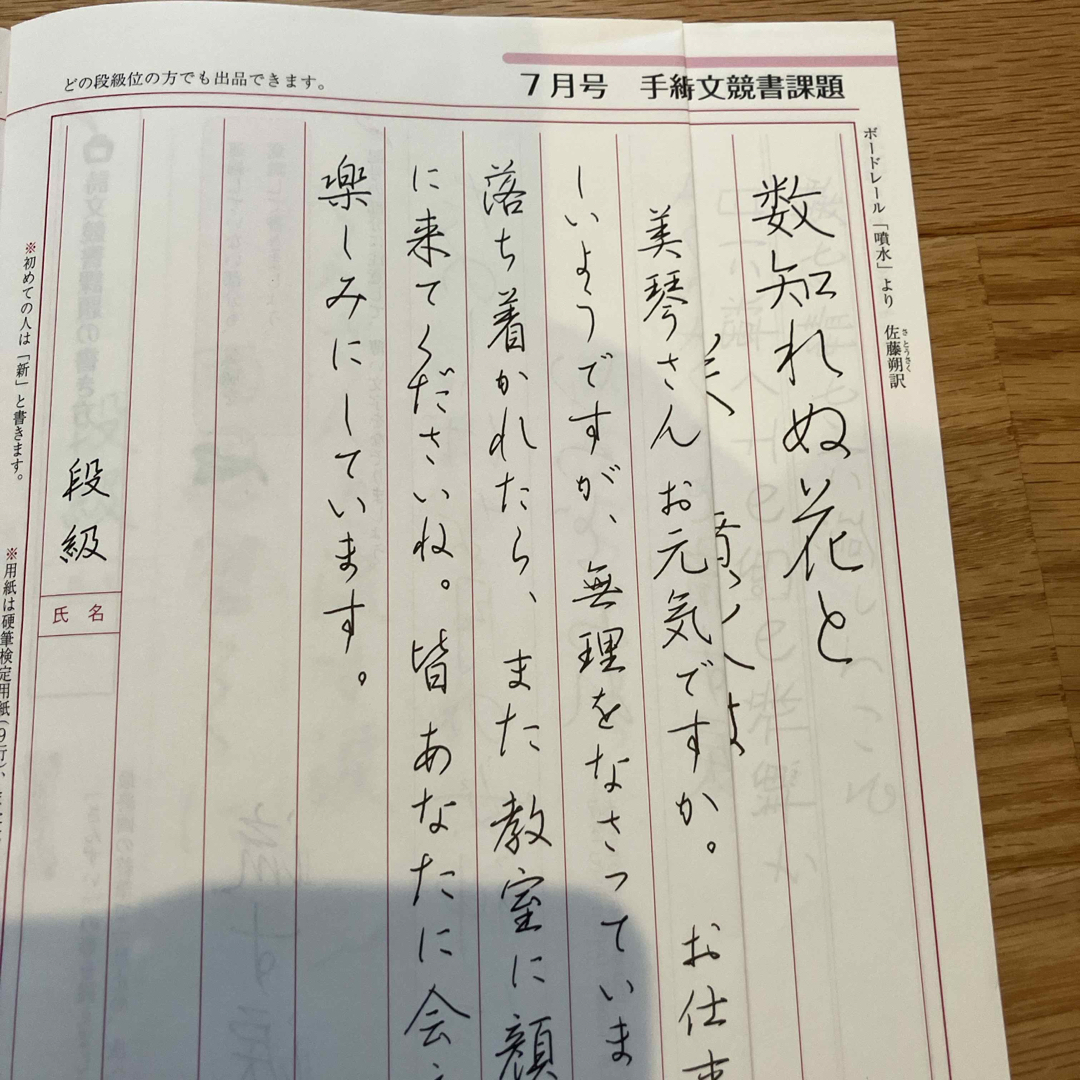 どの段級位の方でも出品できます。
7月号 手
文競書課題
ボードレール「噴水」より 佐藤朔訳
さとうさく
数知れぬ花と
美琴さんお元気ですか。 お仕事
しいようですが、無理をなさっていま
落ち着かれたら、また教室に顔
に来てくださいね。皆あなたに会え
楽しみにしています。
段
級
氏名
※初めての人は「新」と書きます。
※用紙は硬筆検定用紙(9行)、